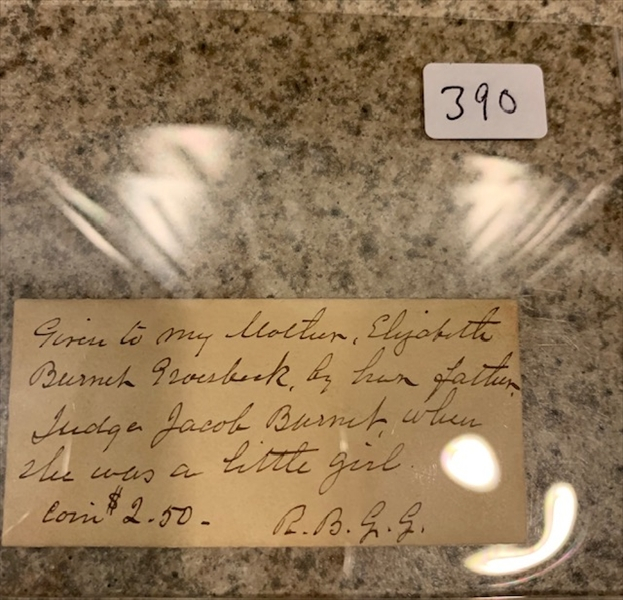 390
Given to my Mother, Elizabeth
Burnet Groesbeck, by her father,
Judge Jacob Burnet, when
she was a little girl.
Coin $2.50 -
R. B. G. G.